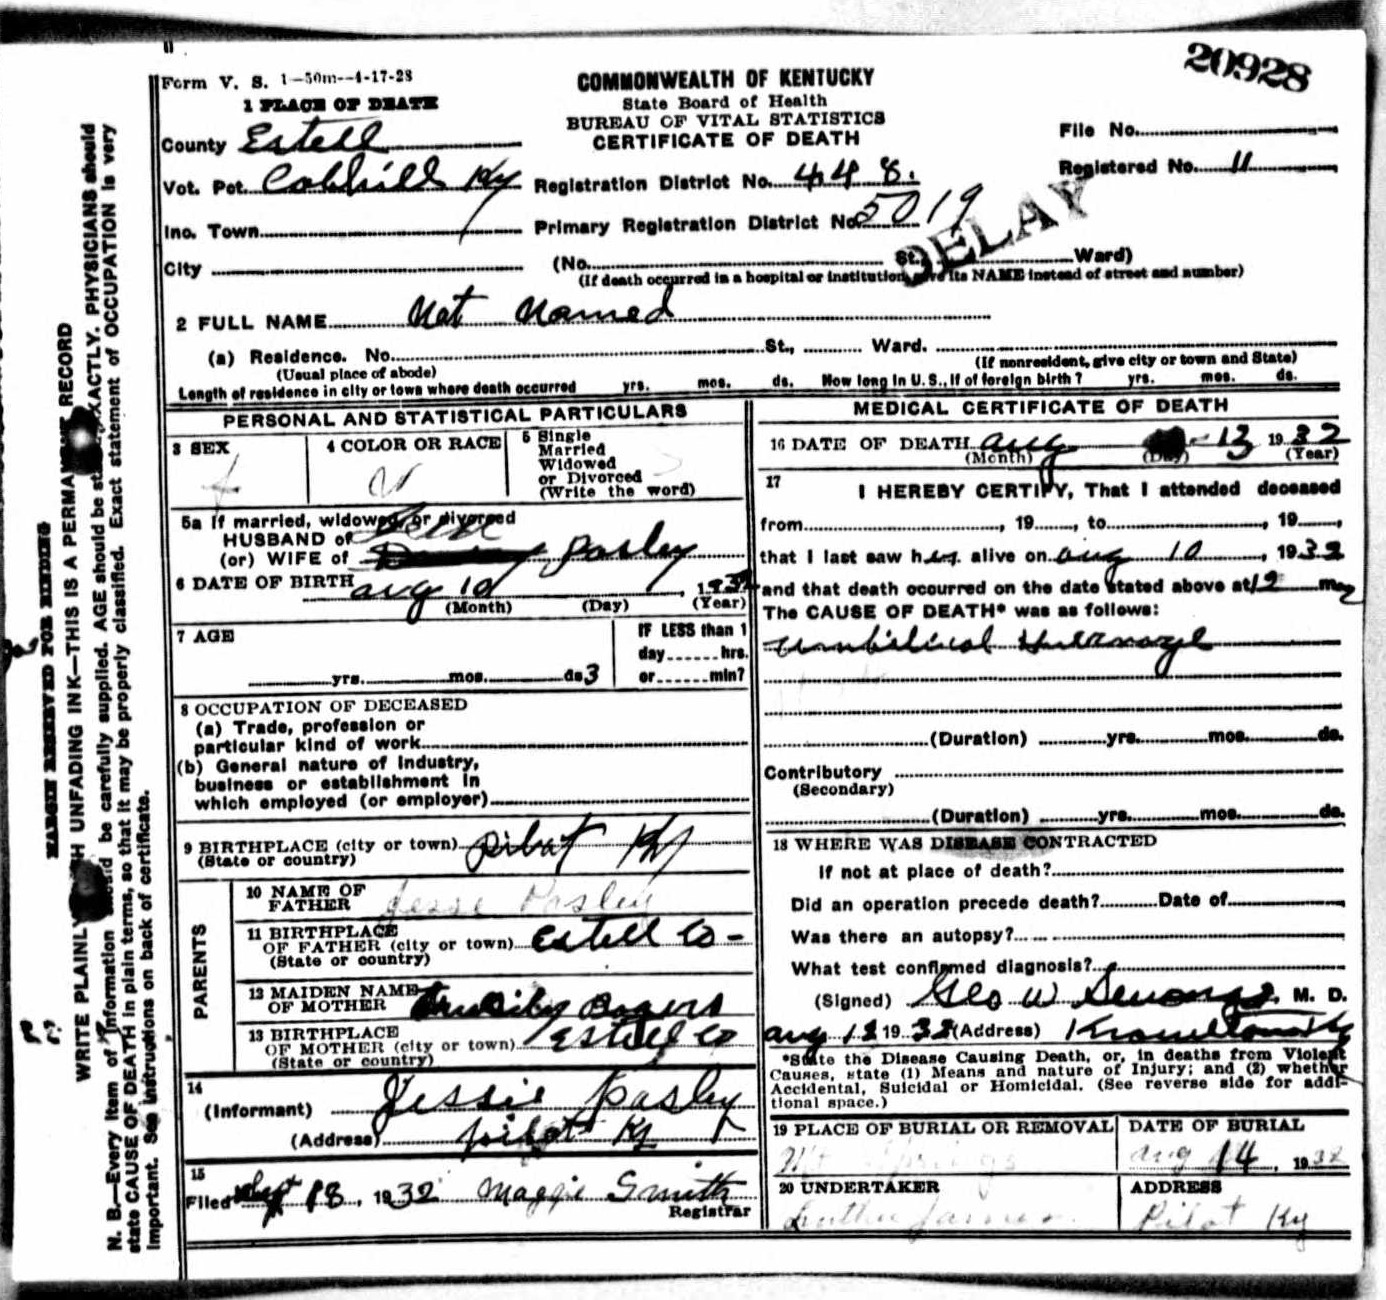 20928
Form V. S. 1—50m—4-17-28
COMMONWEALTH OF KENTUCKY
State Board of Health
BUREAU OF VITAL STATISTICS
CERTIFICATE OF DEATH
1 PLACE OF DEATH
County Estell
Vot. Pct. Cobhill Ky
Inc. Town
City
Registration District No. 448.
Primary Registration District No. 5019
File No.
Registered No. 11
DELAY
(No. St., Ward)
(If death occurred in a hospital or institution, give its NAME instead of street and number)
2 FULL NAME Not Named
(a) Residence. No. St., Ward.
(Usual place of abode) (If nonresident, give city or town and State)
Length of residence in city or town where death occurred yrs. mos. ds. How long in U. S., if of foreign birth? yrs. mos. ds.
PERSONAL AND STATISTICAL PARTICULARS
3 SEX
f
4 COLOR OR RACE
5 Single
Married
Widowed
or Divorced
(Write the word)
5a If married, widowed, or divorced
HUSBAND of
(or) WIFE of Pasley
6 DATE OF BIRTH Aug 10, 1932
(Month) (Day) (Year)
7 AGE
yrs. mos. ds 3
IF LESS than 1
day hrs.
or min?
8 OCCUPATION OF DECEASED
(a) Trade, profession or
particular kind of work
(b) General nature of Industry,
business or establishment in
which employed (or employer)
9 BIRTHPLACE (city or town) pilot Ky
(State or country)
PARENTS
10 NAME OF
FATHER Jesse Pasley
11 BIRTHPLACE
OF FATHER (city or town) Estell Co-
(State or country)
12 MAIDEN NAME
OF MOTHER Rogers
13 BIRTHPLACE
OF MOTHER (city or town) Estell Co
(State or country)
14
(Informant) Jessie Pasley
(Address) pilot Ky
15
Filed Sept 18, 1932 Maggie Smith
Registrar
MEDICAL CERTIFICATE OF DEATH
16 DATE OF DEATH Aug - 13 1932
(Month) (Day) (Year)
17
I HEREBY CERTIFY, That I attended deceased
from , 19 , to , 19 ,
that I last saw her alive on Aug 10, 1932
and that death occurred on the date stated above at 12 m
The CAUSE OF DEATH* was as follows:
Umbilical
(Duration) yrs. mos. ds.
Contributory
(Secondary)
(Duration) yrs. mos. ds.
18 WHERE WAS DISEASE CONTRACTED
If not at place of death?
Did an operation precede death? Date of
Was there an autopsy?
What test confirmed diagnosis?
(Signed) Geo W , M. D.
Aug 1932 (Address)
*State the Disease Causing Death, or, in deaths from Violent
Causes, state (1) Means and nature of Injury; and (2) whether
Accidental, Suicidal or Homicidal. (See reverse side for addi-
tional space.)
19 PLACE OF BURIAL OR REMOVAL
Springs
DATE OF BURIAL
Aug 14, 1932
20 UNDERTAKER
ADDRESS
Pilot Ky
MARGIN RESERVED FOR BINDING
WRITE PLAINLY UNFADING INK—THIS IS A PERMANENT RECORD
N. B.—Every item of information should be carefully supplied. AGE should be stated EXACTLY. PHYSICIANS should
state CAUSE OF DEATH in plain terms, so that it may be properly classified. Exact statement of OCCUPATION is very
important. See instructions on back of certificate.